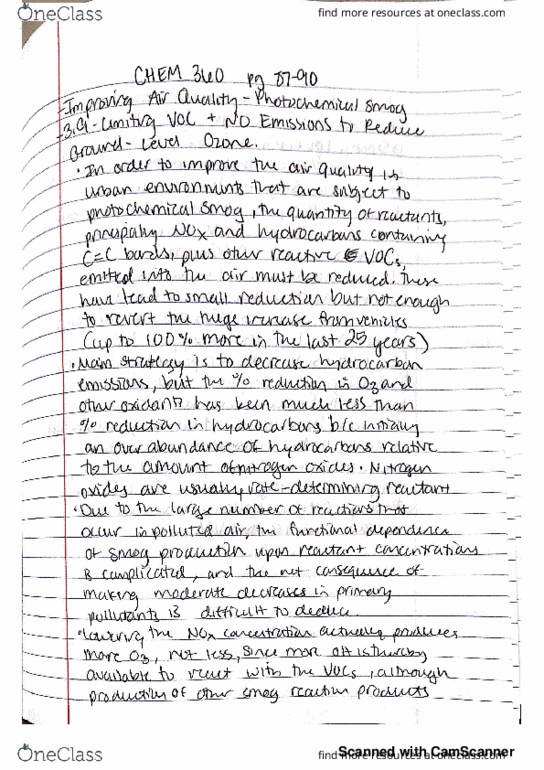 OneClass
find more resources at oneclass.com
CHEM 360 pg 87-90
-Improving Air Quality - Photochemical Smog
-3.9 - Limiting VOC + NO Emissions to Reduce
Ground-Level Ozone.
• In order to improve the air quality in
urban environments that are subject to
photochemical smog, the quantity of reactants,
principally NOx and hydrocarbons containing
C=C bonds, plus other reactive VOCs,
emitted into the air must be reduced. These
have lead to small reduction but not enough
to revert the huge increase from vehicles
(up to 100% more in the last 25 years)
• Main strategy is to decrease hydrocarbon
emissions, but the % reduction in O3 and
other oxidants has been much less than
% reduction in hydrocarbons b/c initially
an over abundance of hydrocarbons relative
to the amount of nitrogen oxides. Nitrogen
oxides are usually rate-determining reactant
• Due to the large number of reactions that
occur in polluted air, the functional dependence
of smog production upon reactant concentrations
is complicated, and the net consequence of
making moderate decreases in primary
pollutants is difficult to deduce.
• Lowering the NOx concentration actually produces
more O3, not less, since more OH is thereby
available to react with the VOCs, although
production of other smog reaction products
OneClass
find more resources at oneclass.com
Scanned with CamScanner